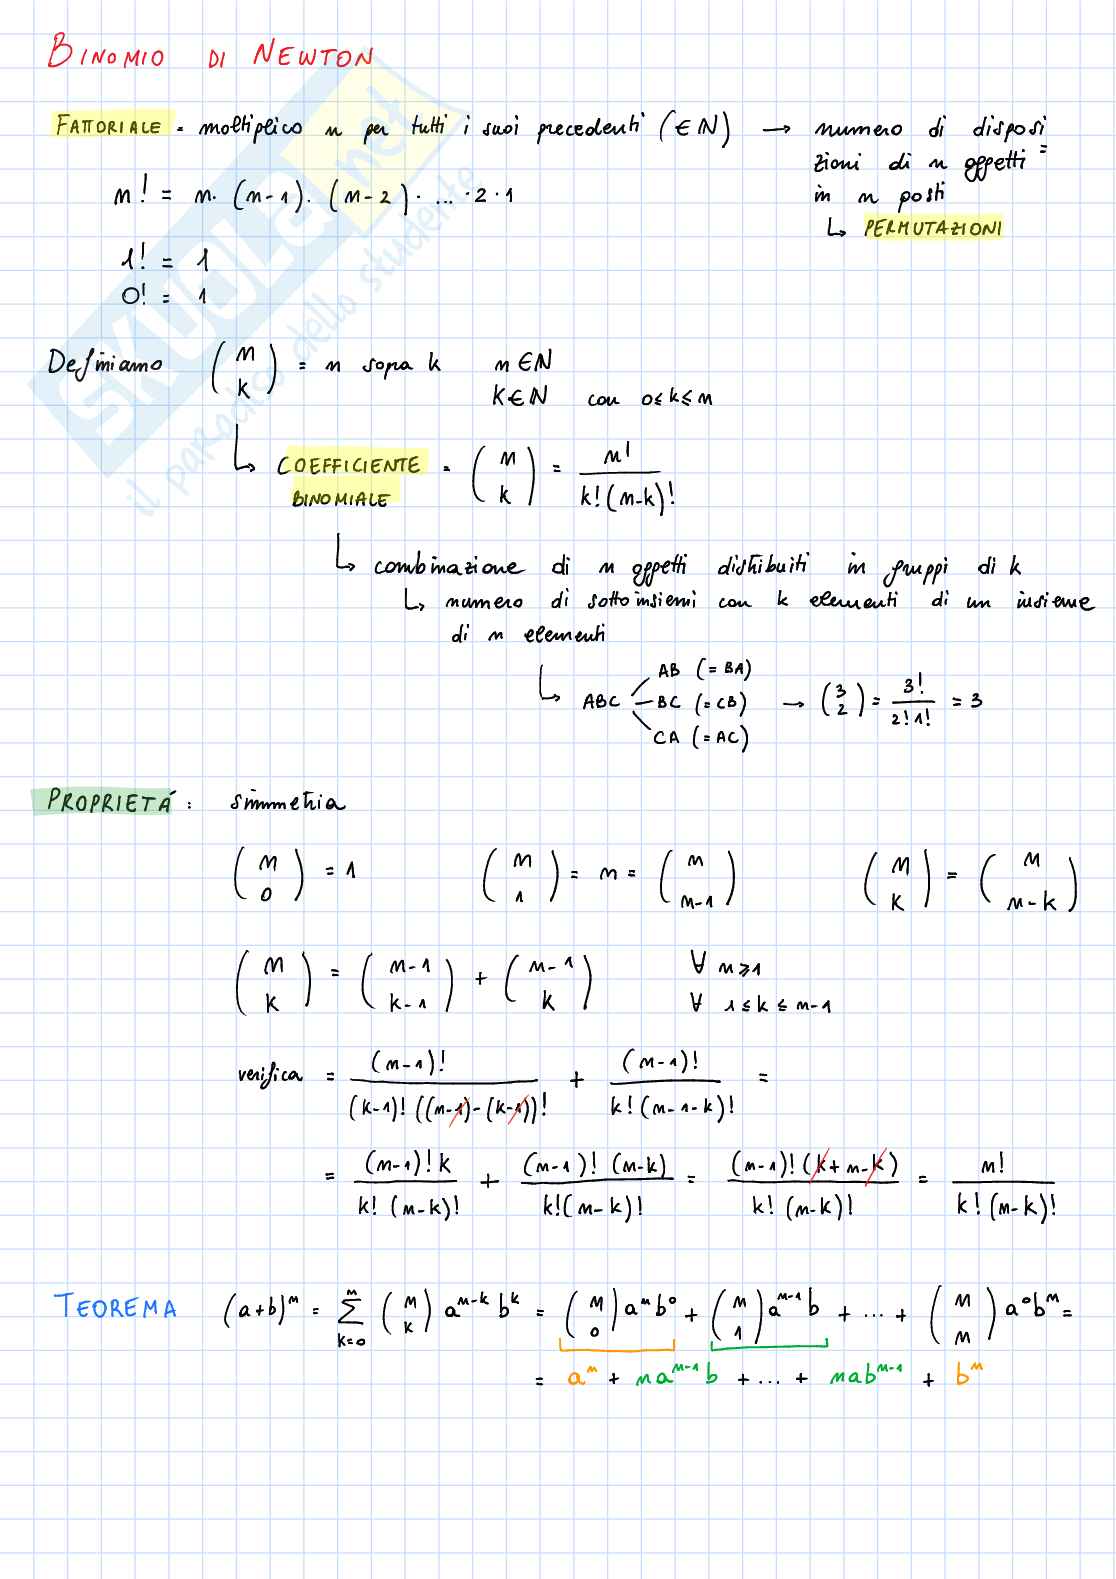 BINOMIO DI NEWTON
FATTORIALE = moltiplico n per tutti i suoi precedenti (∈ N) → numero di disposi
zioni di n oggetti
n! = n · (n-1) · (n-2) · ... · 2 · 1
in n posti
↳ PERMUTAZIONI
1! = 1
0! = 1
Definiamo (n k) = n sopra k n ∈ N
k ∈ N con 0 ≤ k ≤ n
↳ COEFFICIENTE BINOMIALE = (n k) = n! / k!(n-k)!
↳ combinazione di n oggetti distribuiti in gruppi di k
↳ numero di sottoinsiemi con k elementi di un insieme
di n elementi
AB (= BA)
↳ ABC BC (= CB) → (3 2) = 3! / 2!1! = 3
CA (= AC)
PROPRIETÁ : simmetria
(n 0) = 1 (n 1) = n = (n n-1) (n k) = (n n-k)
(n k) = (n-1 k-1) + (n-1 k) ∀ n ≥ 1
∀ 1 ≤ k ≤ n-1
verifica = (n-1)! / (k-1)! ((n-1)-(k-1))! + (n-1)! / k!(n-1-k)! =
= (n-1)! k / k! (n-k)! + (n-1)! (n-k) / k!(n-k)! = (n-1)! (k+n-k) / k! (n-k)! = n! / k! (n-k)!
TEOREMA (a+b)^n = ∑_{k=0}^{n} (n k) a^{n-k} b^k = (n 0) a^n b^0 + (n 1) a^{n-1} b + ... + (n n) a^0 b^n =
= a^n + n a^{n-1} b + ... + n a b^{n-1} + b^n
SKUOLA.net
il paradiso dello studente